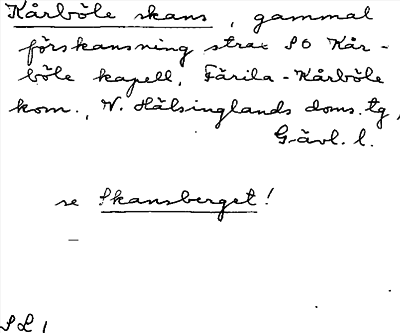 Kårböle skans, gammal
förskansning strax SO Kår-
böle kapell, Färila-Kårböle
kom., V. Hälsinglands doms. tg,
Gävl. l.
se Skansberget!